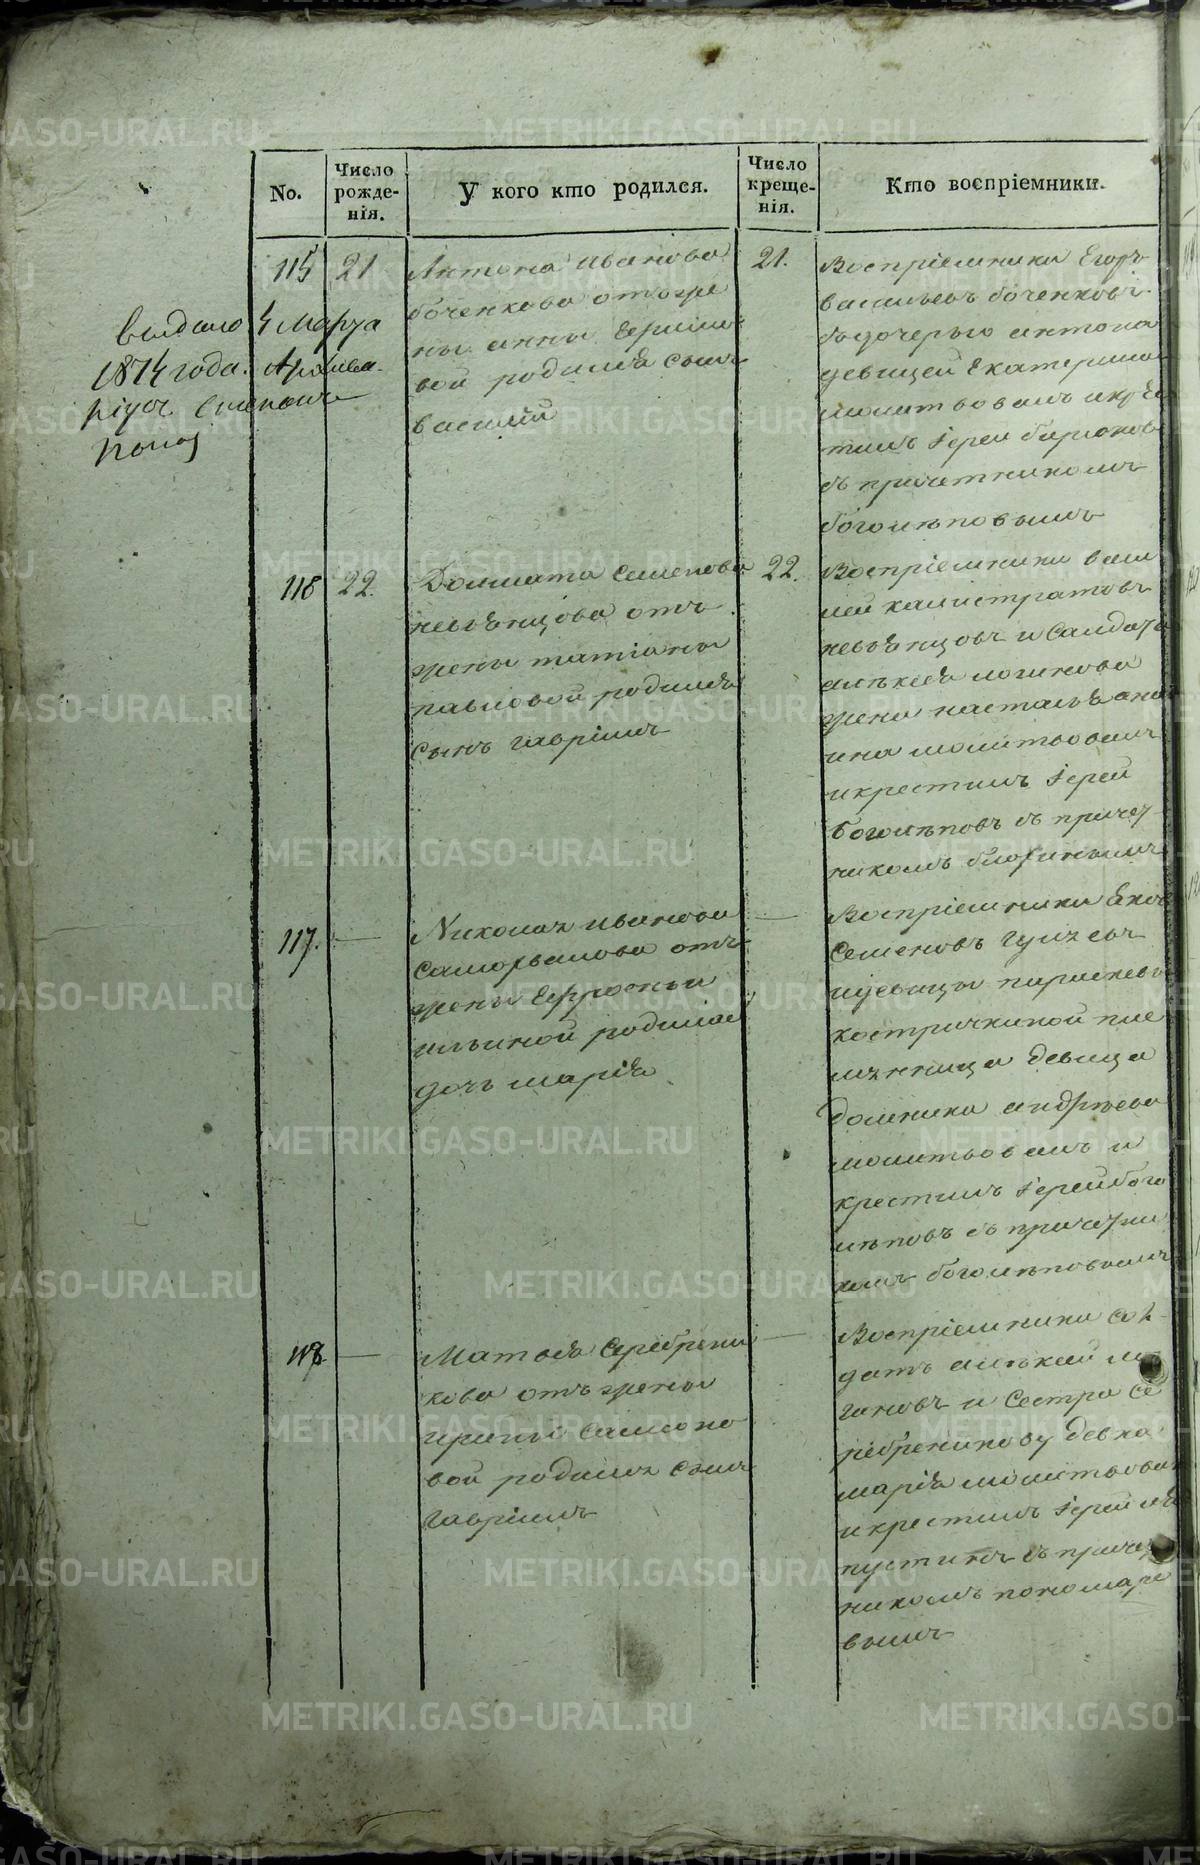 No.
Число рожде-нія.
У кого кто родился.
Число креще-нія.
Кто воспріемники.
115
21
Антона иванова
боченкова отжре
ны анны
вой родился сынъ
василій
21.
Воспріемники Егоръ
васильевъ боченковъ
съдочерью антона
девицей Екатерина
молитвовалъ икре
тилъ Іерей бирюковъ
съ причетникомъ
боголѣповымъ
выдано 4 Марта
1874 года.
116
22.
Долмата семенова
невѣянцова отъ
жены татіаны
павловой родился
сынъ гавріилъ
22.
Воспріемники васи
лей калистратовъ
невѣянцовъ и салдата
алѣкѣя логинова
жена настасья
ина молитвовалъ
икрестилъ Іерей
боголѣповъ съ причет
никомъ
117.
Николая иванова
саморвалова отъ
жены Ефросиньи
ильиной родилас
дочь марія
Воспріемники Яковъ
семеновъ
идевицы параскевы
костричкиной пле
мянница девица
домника андрѣева
молитвовалъ и
крестилъ Іерей бого
лѣповъ съ причетни
комъ боголѣповымъ
118.
Матвѣя серебрени
кова отъ жены
ирины самсоно
вой родился сынъ
гавріилъ
Воспріемники сол
датъ алѣкѣй ло
гиновъ и сестра се
ребреникову девка
марія молитвовал
икрестилъ Іерей ля
пустинъ съ причет
никомъ пономаре
вымъ
METRIKI.GASO-URAL.RU